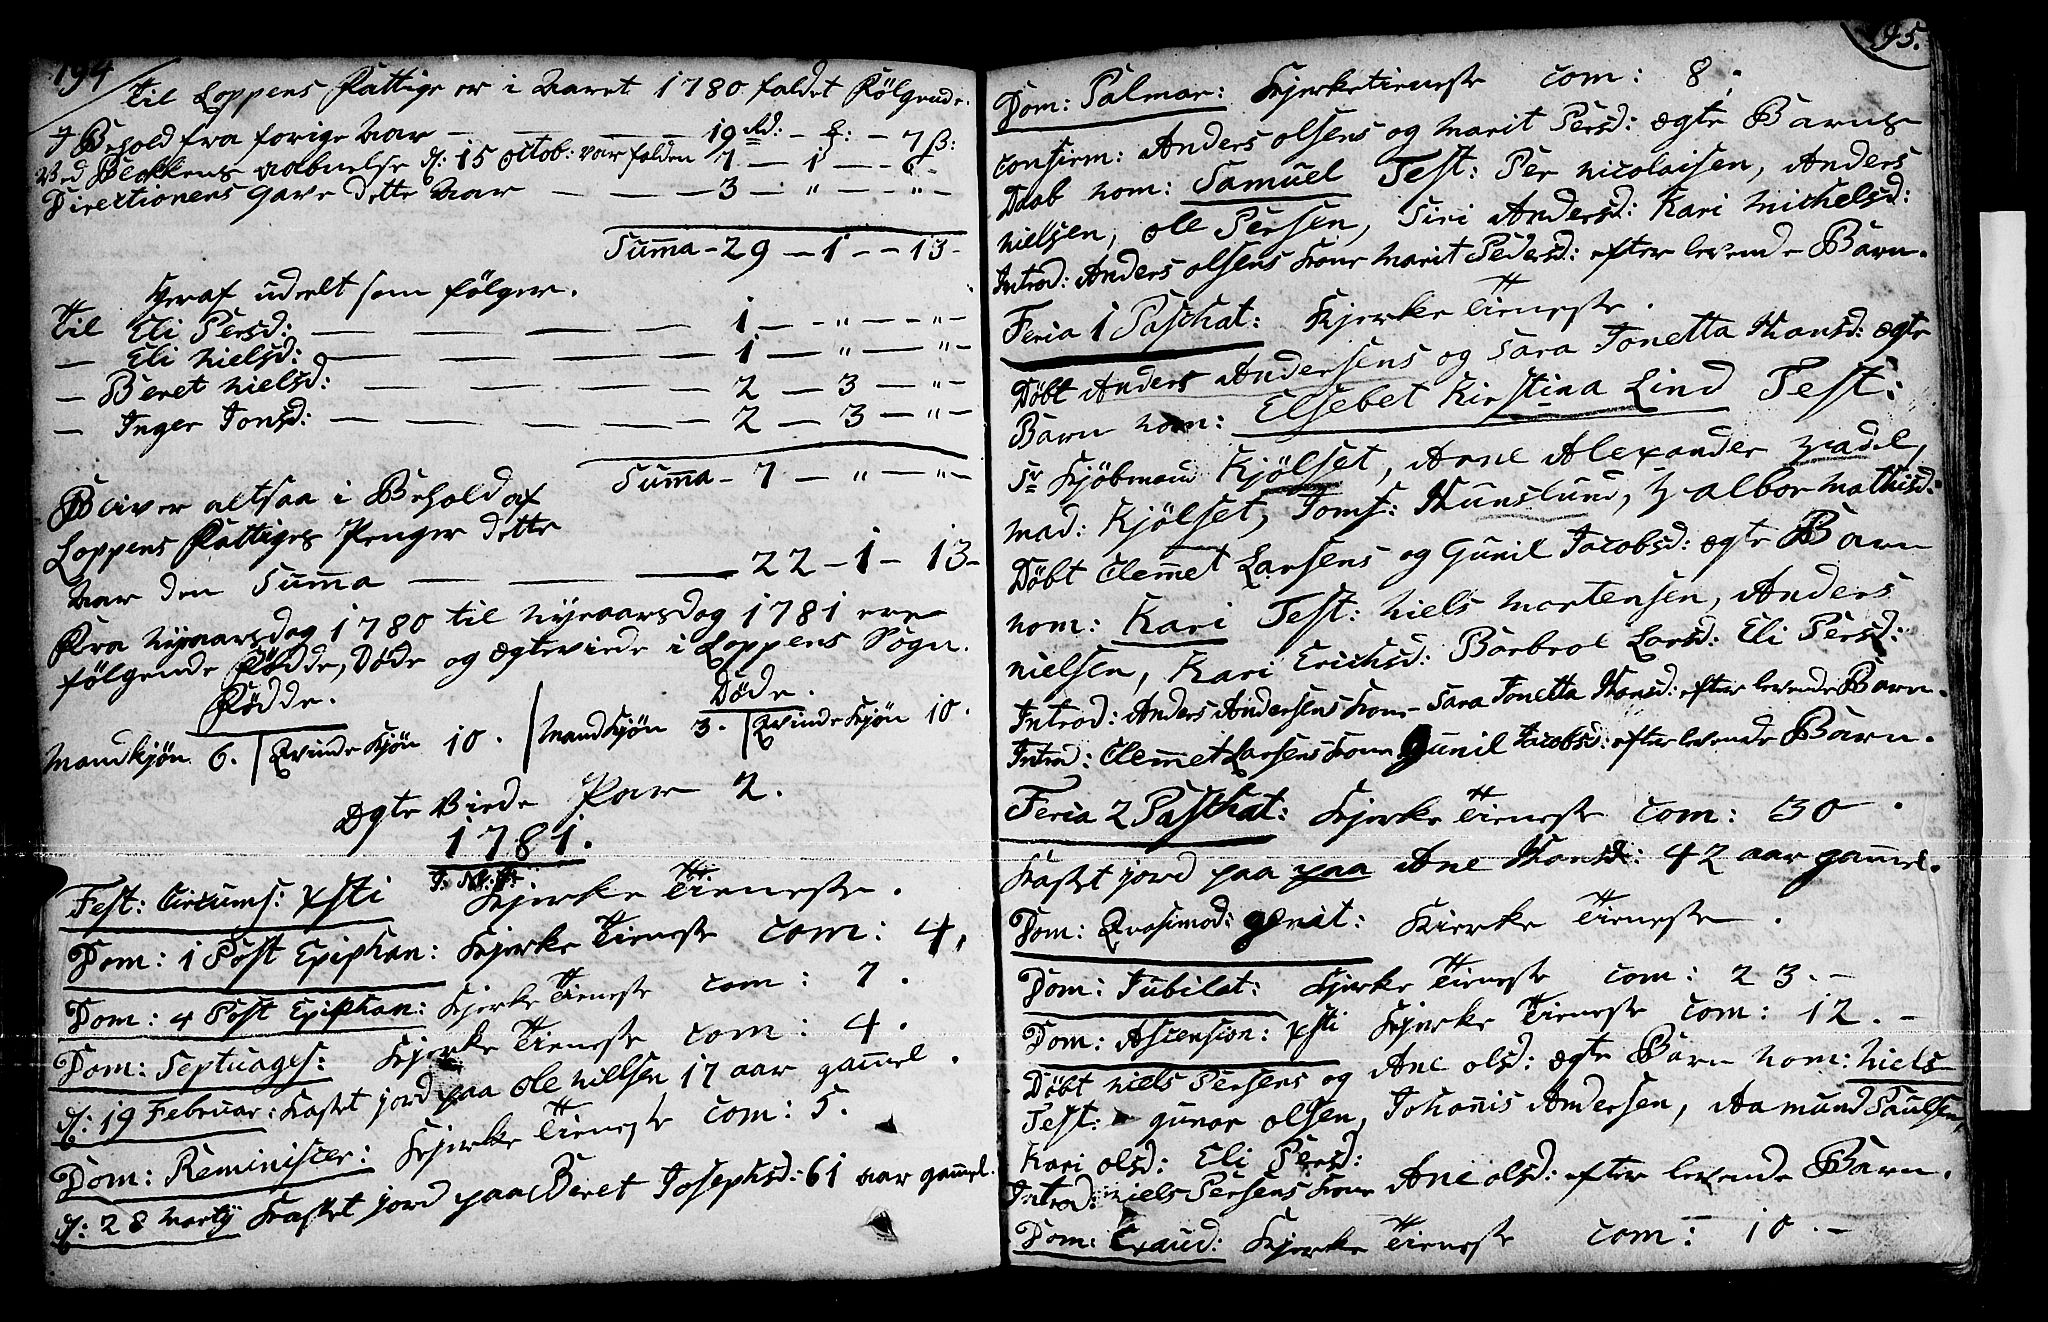 194
Til Loppens Fattige er i Aaret 1780 faldet Følgende.
J Behold fra forige Aar — 19 Rd: — ß: — 7 ß:
Ved Blokkens Aabnelse d: 15 octob: var falden 7 — 1 — 6 —
Directionens Gave dette Aar — 3 — " — " —
Summa — 29 — 1 — 13 —
Heraf udelt som følger.
Til Eli Persd: — 1 — " — " —
— Eli Nielsd: — 1 — " — " —
— Beret Nielsd: — 2 — 3 — " —
— Inger Jonsd: — 2 — 3 — " —
Summa — 7 — " — " —
Bliver altsaa i Behold af
Loppens Fattiges Penger dette
Aar den Summa — 22 — 1 — 13 —
Fra Nyeaarsdag 1780 til Nyeaarsdag 1781 ere
følgende Fødde, Døde og Ægteviede i Loppens Sogn.
Fødde. Døde.
Mandkjøn 6. Qvinde Kjøn 10. Mandkjøn 3. Qvinde Kjøn 10.
Ægte Viede Par 2.
1781.
Fest: Circums: Xsti J: N: J: Kjerke Tieneste.
Dom: 1 Post Epiphan: Kjerke Tieneste com: 4.
Dom: 4 Post Epiphan: Kjerke Tieneste com: 7.
Dom: Septuages: Kjerke Tieneste com: 4.
d: 19 Februar: Kastet jord paa Ole Nielsen 17 aar gam̄el.
Dom: Reminiscer: Kjerke Tieneste com: 5.
d: 28 Martij Kastet jord paa Beret Josephsd: 61 aar gam̄el.
195.
Dom: Palmar: Kjerketieneste com: 8.
Confirm: Anders Olsens og Marit Persd: ægte Barns
Daab nom: Samuel Test: Per Nicolaisen, Anders
Nielsen, Ole Persen, Siri Andersd: Kari Michelsd:
Introd: Anders Olsens Kone Marit Pedersd: efter levende Barn.
Feria 1 Paschat: Kjerke Tieneste.
Døbt Anders Andersens og Sara Jonetta Hansd: ægte
Barn nom: Elsebet Kirstina Lind Test:
Sr Kjøbmand Kjølset, Arne Alexander Zadel,
Mad: Kjølset, Jomf: Hunslund, Zalbor Mathisd:
Døbt Clem̄et Larsens og Gunil Jacobsd: ægte Barn
nom: Kari Test: Niels Mortensen, Anders
Nielsen, Kari Erichsd: Barbroe Larsd: Eli Persd:
Introd: Anders Andersens Kone Sara Jonetta Hansd: efter levende Barn.
Introd: Clem̄et Larsens Kone Gunil Jacobsd: efter levende Barn.
Feria 2 Paschat: Kjerke Tieneste com: 30.
Kastet jord paa paa Ane Hansd: 42 aar gam̄el.
Dom: Qvasimod: genit: Kierke Tieneste.
Dom: Jubilat: Kjerke Tieneste com: 23. —
Dom: Ascension: Xsti Kjerke Tieneste com: 12. —
Døbt Niels Persens og Ane Olsd: ægte Barn nom: Niels
Test: Gunar Olsen, Johan̄is Andersen, Aamund Paulsen,
Kari Olsd: Eli Persd:
Introd: Niels Persens Kone Ane Olsd: efter levende Barn.
Dom: Exaud: Kjerke Tieneste com: 10. —